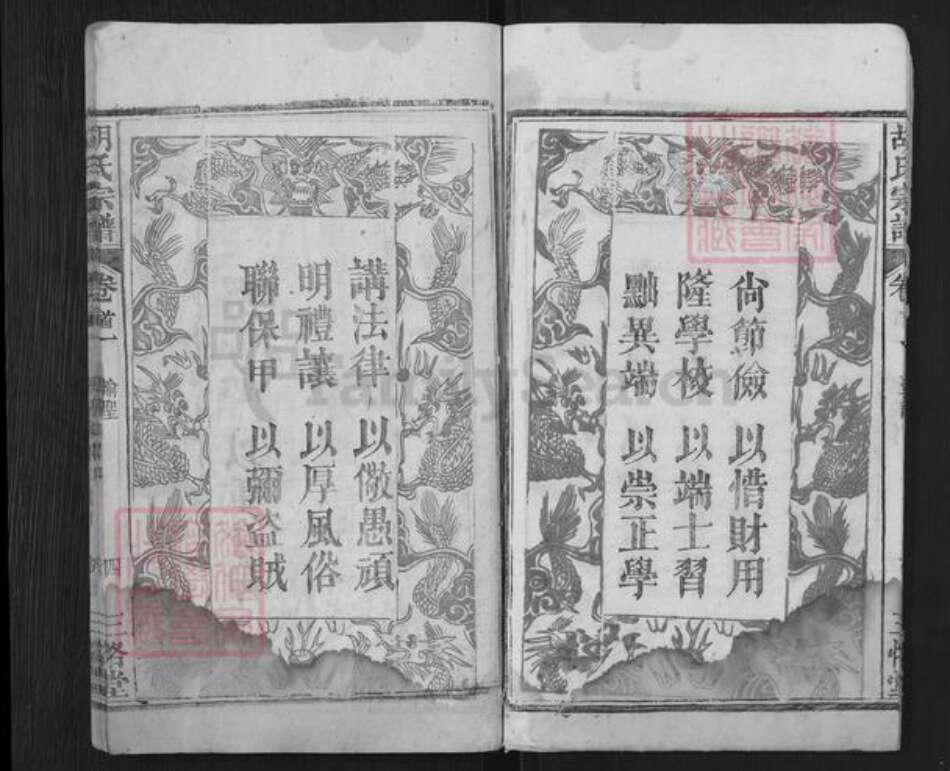 尙節儉 以惜財用
隆學校 以端士習
黜異端 以崇正學
講法律 以儆愚頑
明禮讓 以厚風俗
聯保甲 以彌盗賊
胡氏宗譜 卷首一
三恪堂
胡氏宗譜 卷
FamilySearch